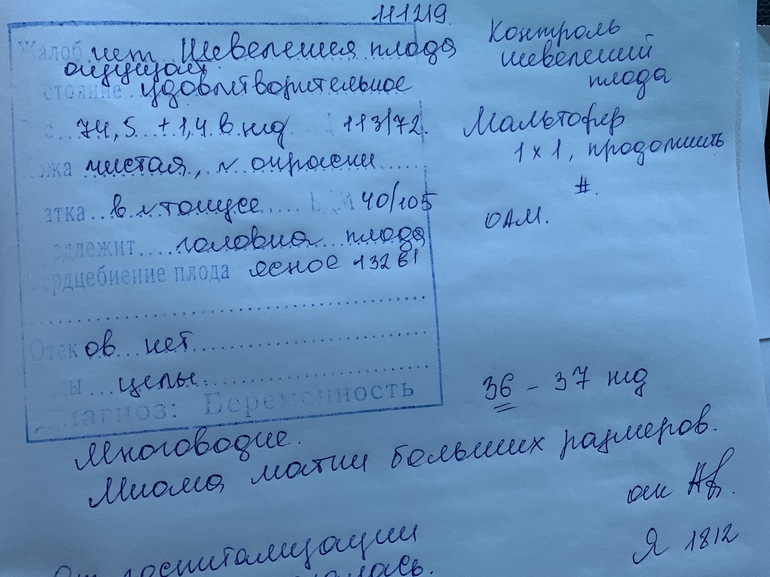 11 12 19.
Жалоб нет Шевеления плода
ощущает
стояние удовлетворительное
74,5 + 1,4 в нед 113/72.
Кожа чистая, N окраски
атка в N тонусе 40/105
едлежит головка плода
Сердцебиение плода ясное 132 в 1
Отек ов нет
ы целы.
Диагноз: Беременность 36 - 37 нед
Многоводие.
Миома матки больших размеров.
От госпитализации
алась.
Контроль
шевелений
плода
Мальтофер
1 x 1, продолжить
#.
ОАМ.
Я 1812